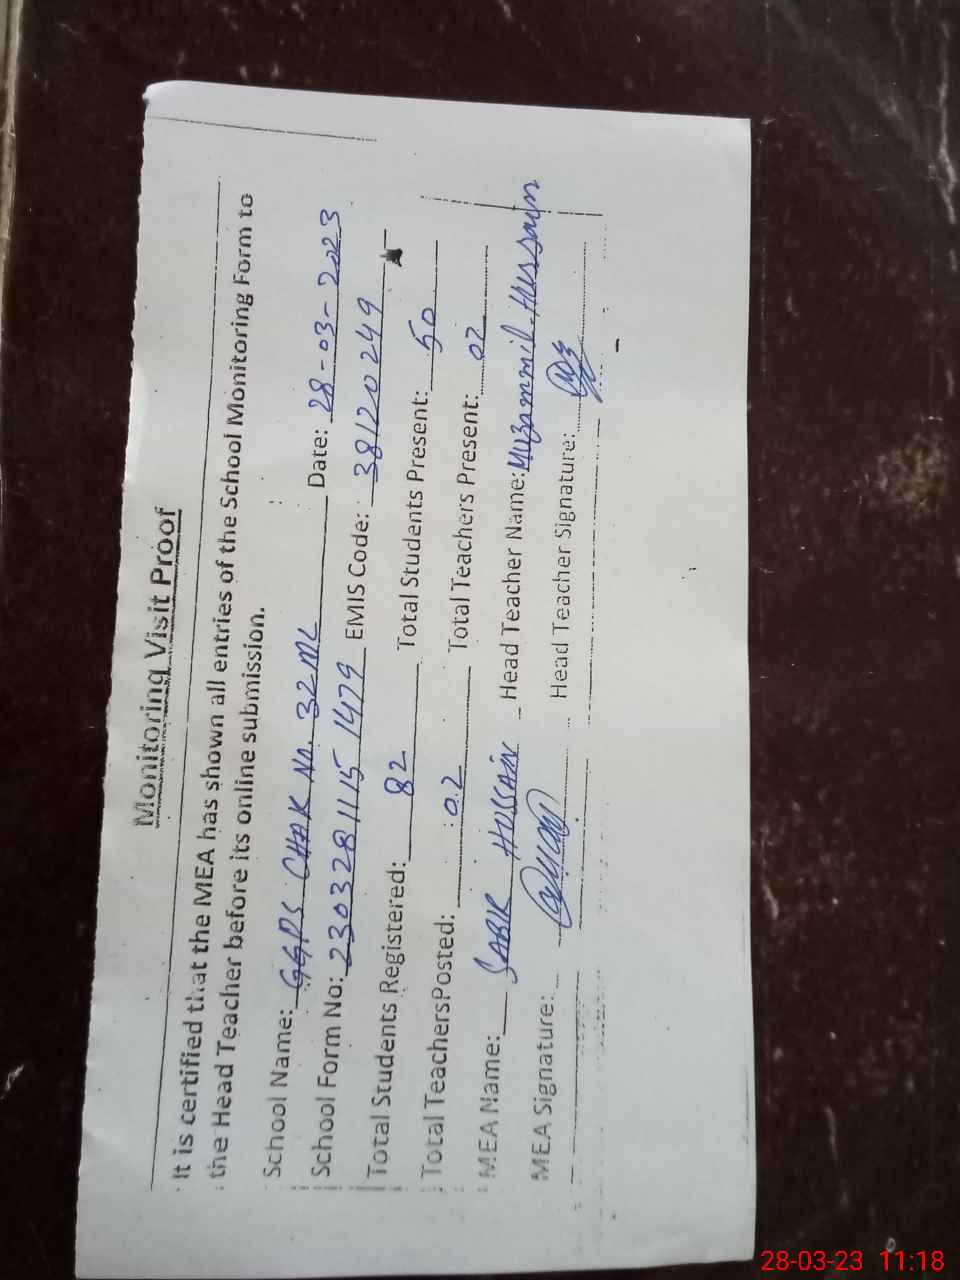 Monitoring Visit Proof
It is certified that the MEA has shown all entries of the School Monitoring Form to
the Head Teacher before its online submission.
School Name: GGPS CHAK No. 32 ML Date: 28-03-2023
School Form No: 2303281115 1479 EMIS Code: 38120249
Total Students Registered: 82 Total Students Present: 50
Total TeachersPosted: 02 Total Teachers Present: 02
MEA Name: SABIR HUSSAIN Head Teacher Name: Muzammil Hussain
MEA Signature: Head Teacher Signature:
28-03-23 11:18